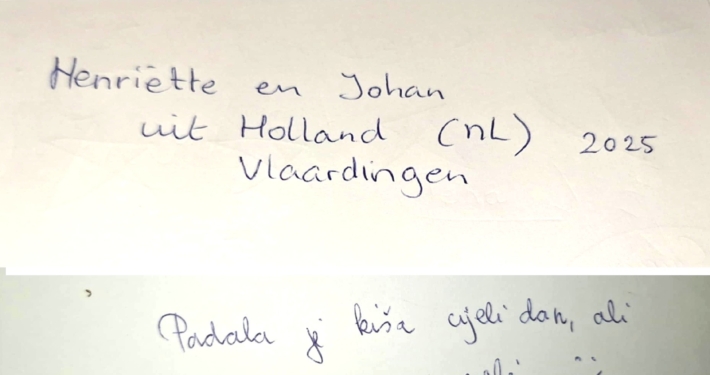 Henriëtte en Johan
uit Holland (NL) 2025
Vlaardingen
Padala je kiša cijeli dan, ali